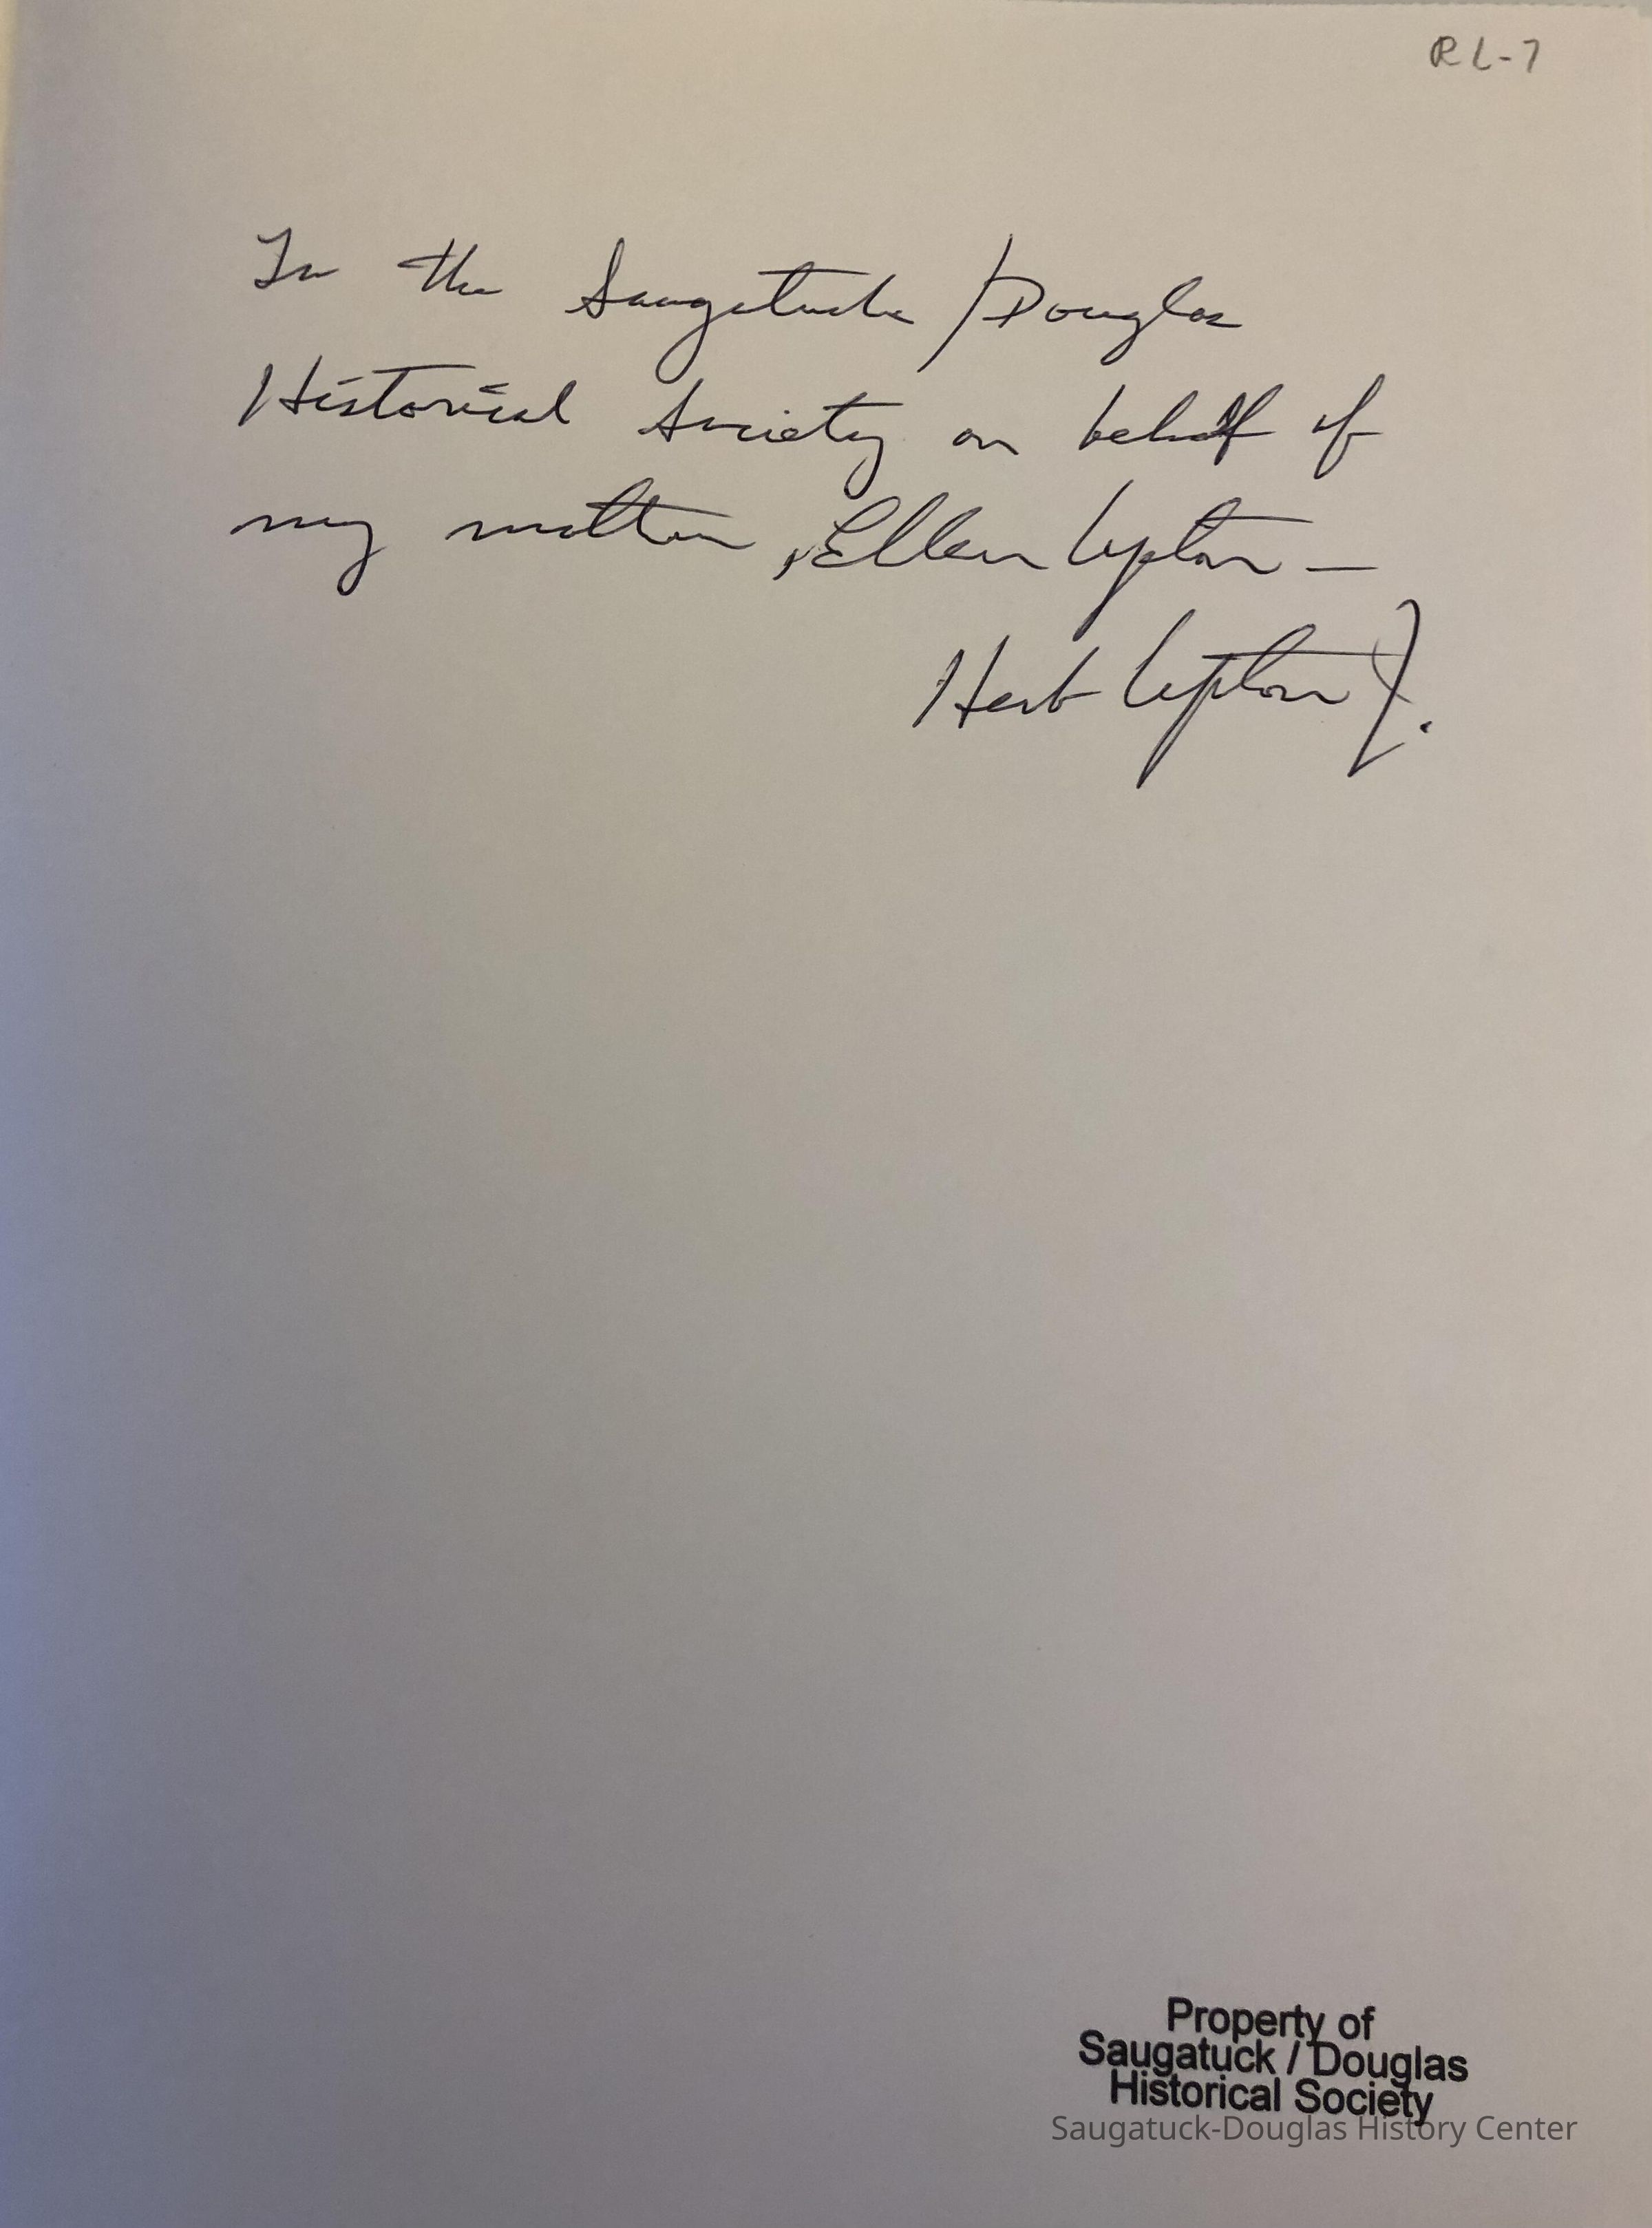 RL-7
To the Saugatuck / Douglas
Historical Society on behalf of
my mother, Ellen Lipton —
Herb Lipton Jr.
Property of
Saugatuck / Douglas
Historical Society
Saugatuck-Douglas History Center